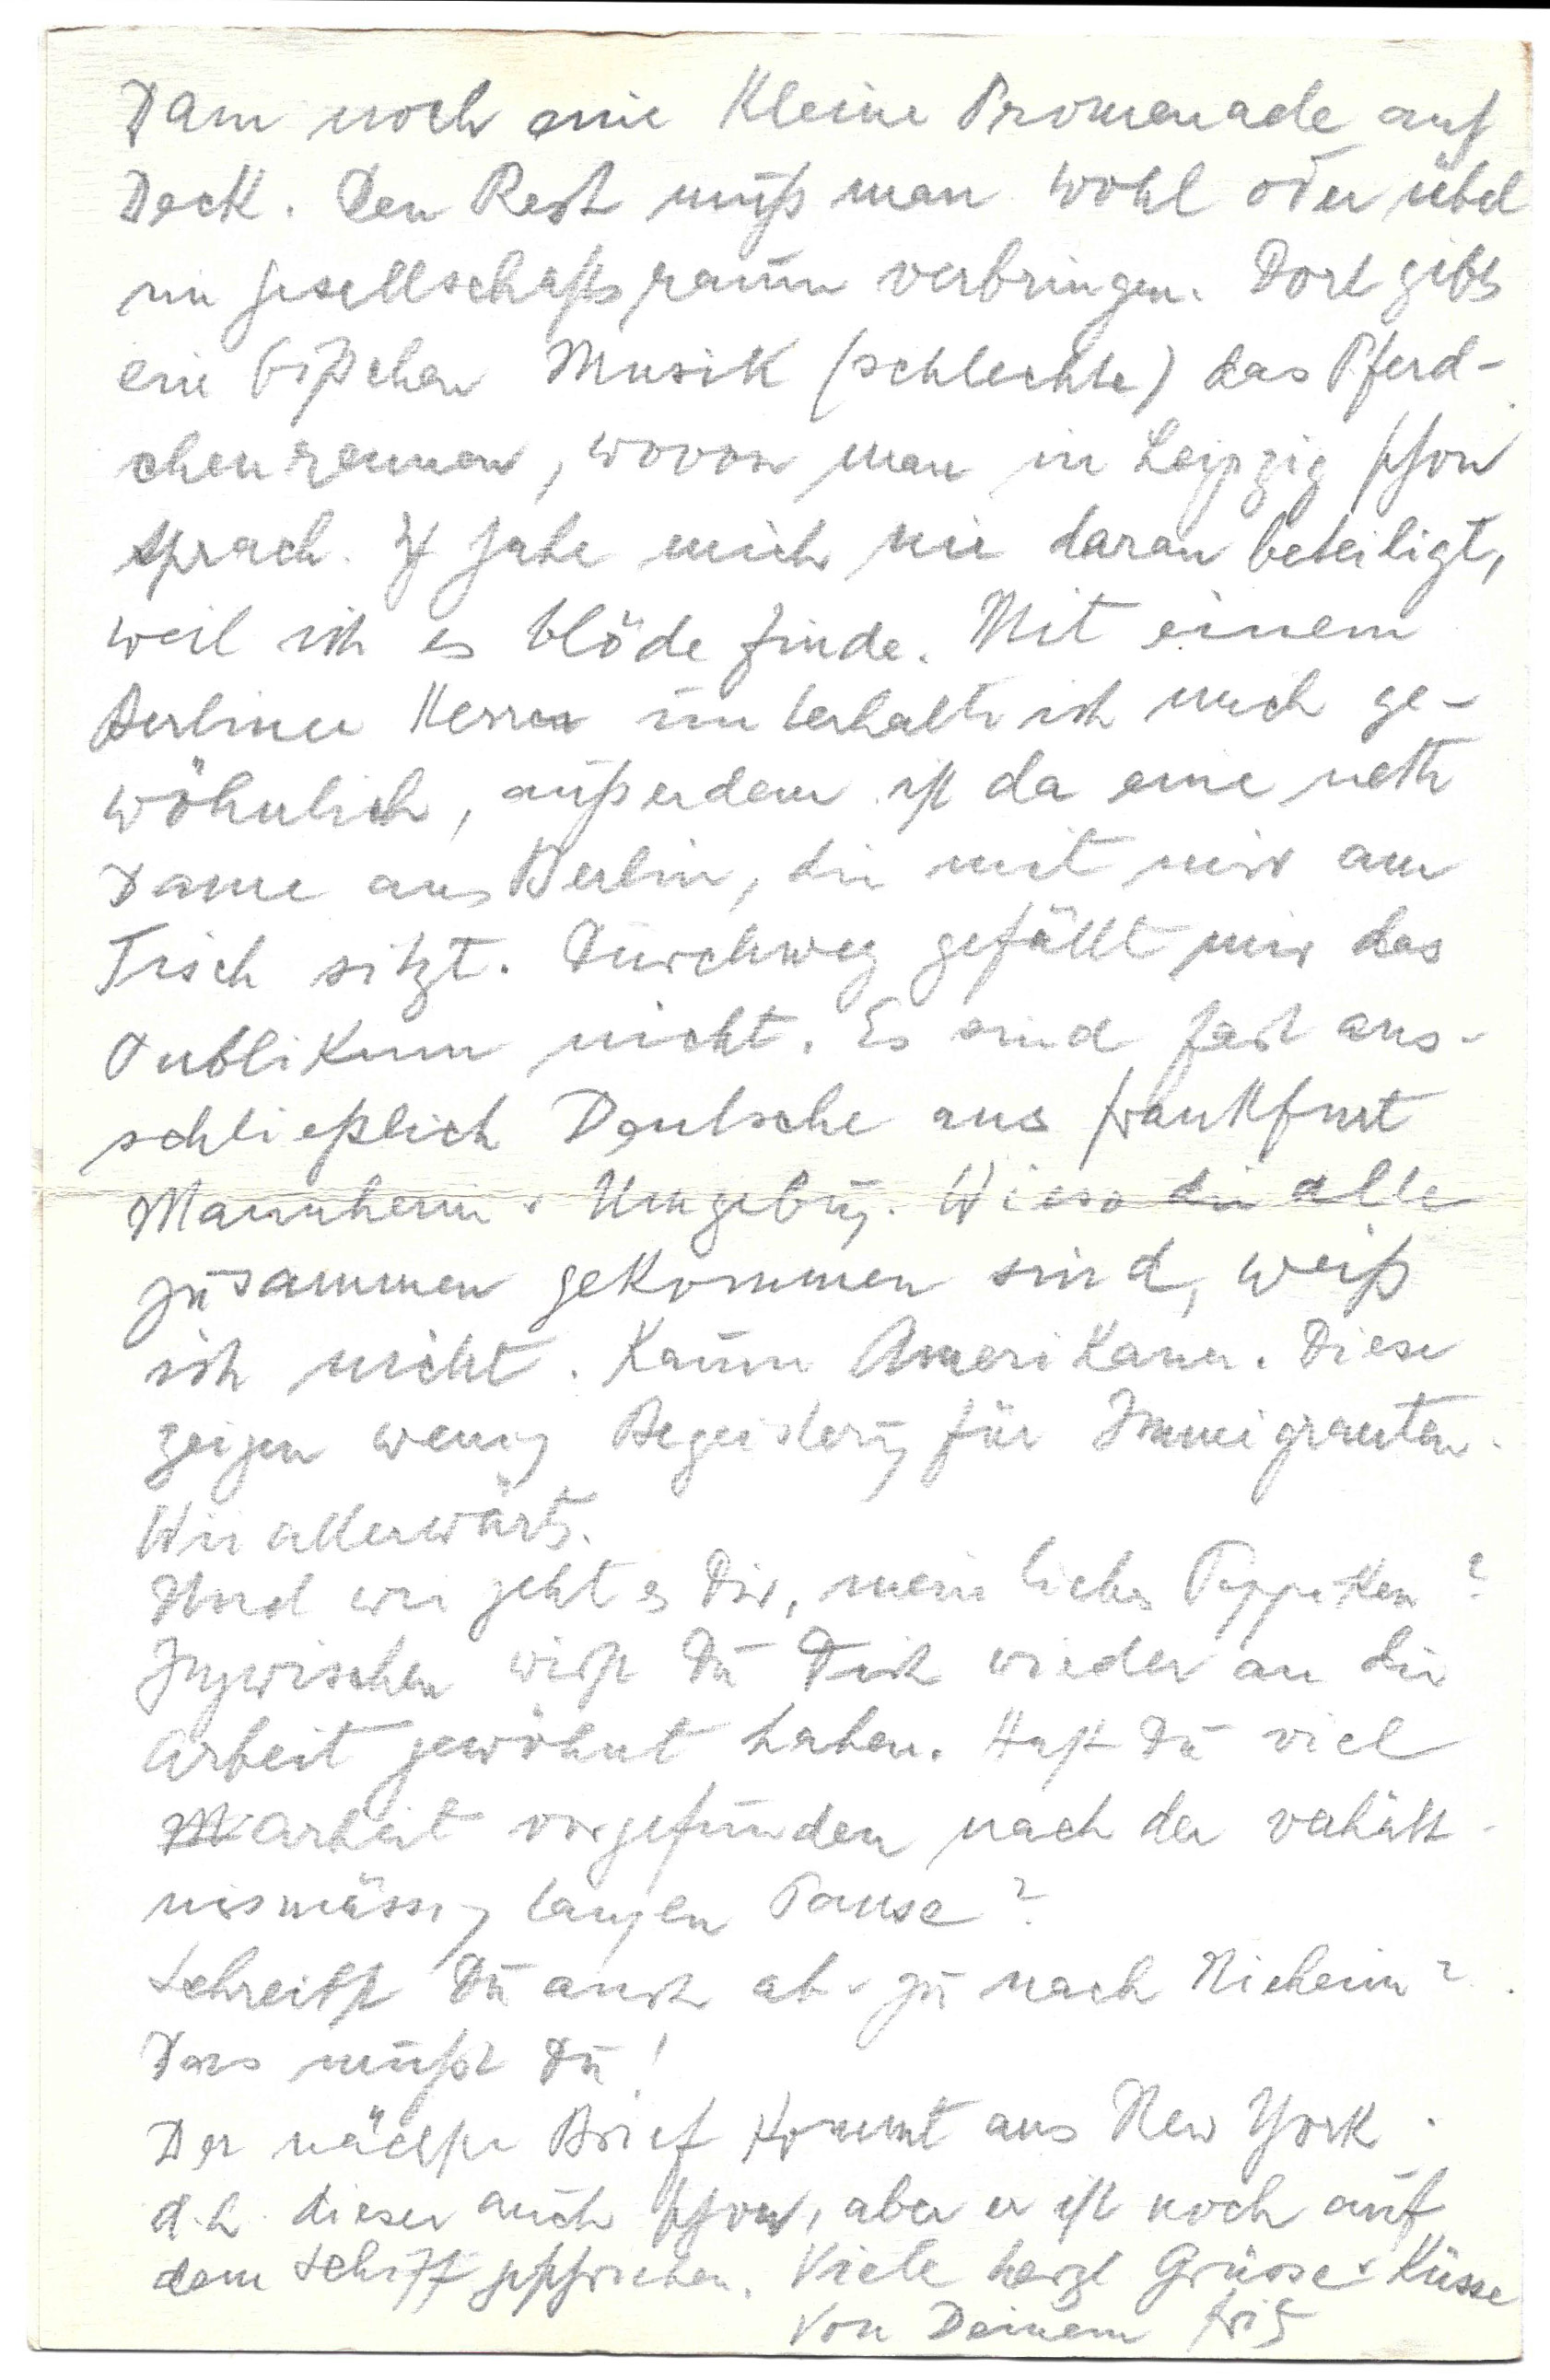 Dann noch eine kleine Promenade auf
Deck. Den Rest muß man wohl oder übel
im Gesellschaftsraum verbringen. Dort gibts
ein bißchen Musik (schlechte) das Pferd-
chenrennen, wovon man in Leipzig schon
sprach. Ich habe mich nie daran beteiligt,
weil ich es blöde finde. Mit einem
Berliner Herrn unterhalte ich mich ge-
wöhnlich, außerdem ist da eine nette
Dame aus Berlin, die mit mir am
Tisch sitzt. Durchweg gefällt mir das
Publikum nicht. Es sind fast aus-
schließlich Deutsche aus Frankfurt
Mannheim & Umgebung. Wieso die alle
zusammen gekommen sind, weiß
ich nicht. Kaum Amerikaner. Diese
zeigen wenig Begeisterung für Immigranten.
Wie allerwärts.
Und wie geht es Dir, mein liebes ?
Inzwischen wirst Du Dich wieder an die
Arbeit gewöhnt haben. Hast Du viel
Arbeit vorgefunden nach der verhält-
nismässig langen Pause?
Schreibst Du auch ab & zu nach Nieheim?
Das mußt Du!
Der nächste Brief kommt aus New York.
d.h. dieser auch schon, aber er ist noch auf
dem Schiff geschrieben. Viele herzl Grüsse & Küsse
von Deinem Fritz